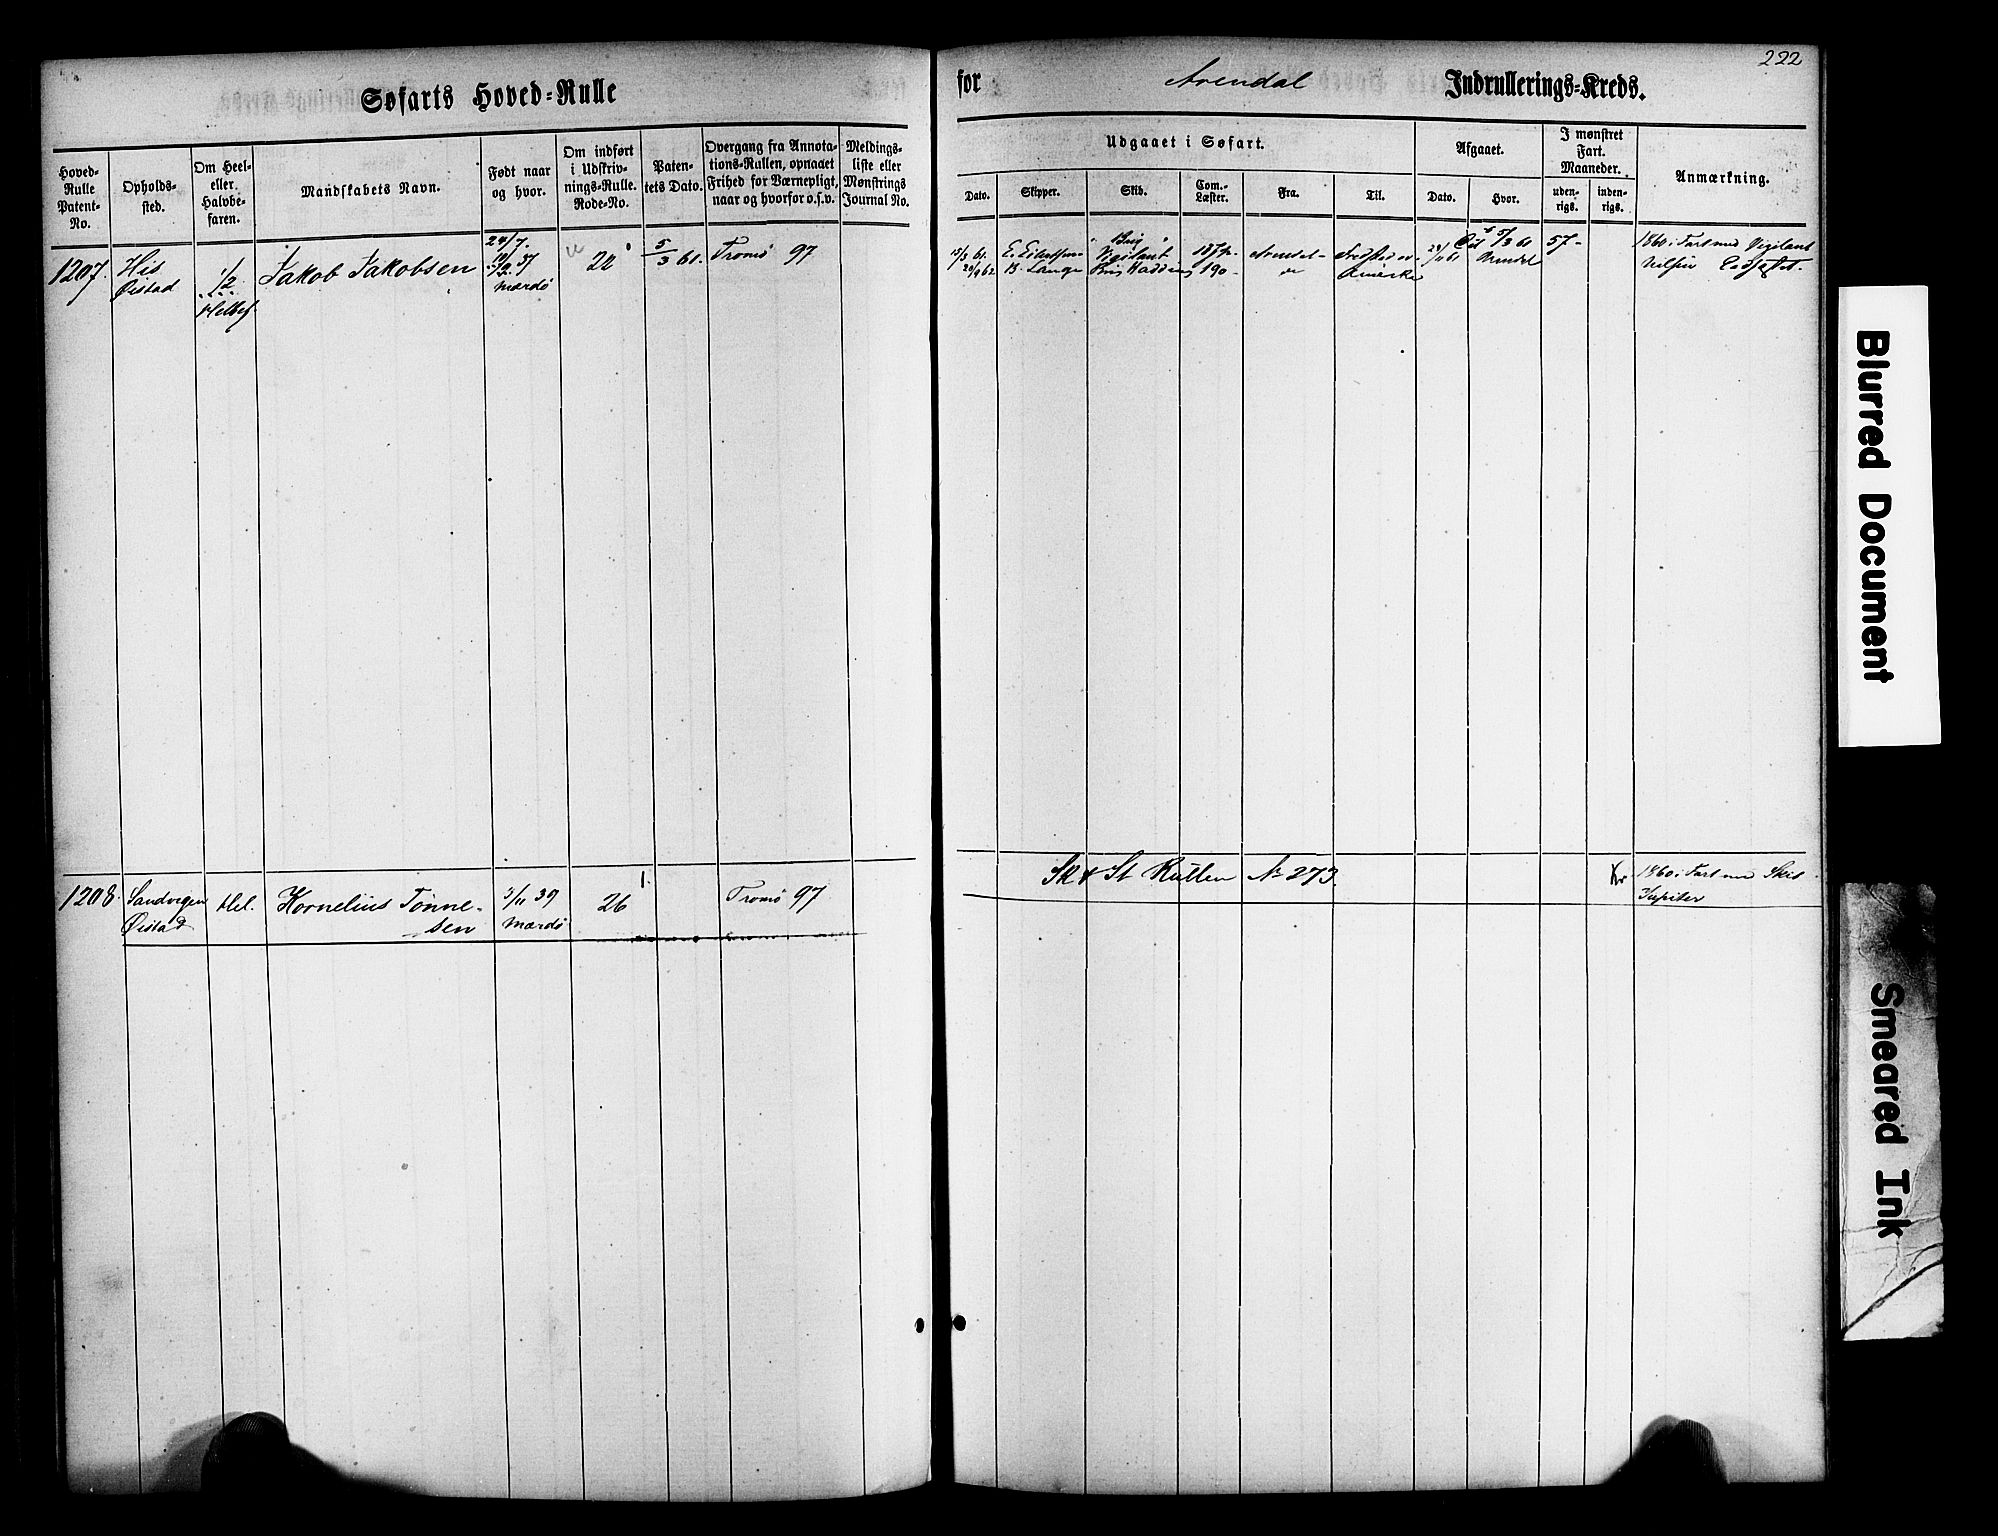 222
Søfarts Hoved=Rulle
for Arendal Indrullerings=Kreds.
Hoved-
Rulle
Patent-
No.
Opholds-
sted.
Om Heel-
eller
Halvbe-
faren.
Mandskabets Navn.
Født naar
og hvor.
Om indført
i Udskriv-
nings-Rulle.
Rode-No.
Paten-
tets Dato.
Overgang fra Annota-
tions-Rullen, opnaaet
Frihed for Værnepligt,
naar og hvorfor o.s.v.
Meldings-
liste eller
Mønstrings
Journal No.
Udgaaet i Søfart.
Dato.
Skipper.
Skib.
Com.-
Læster.
Fra.
Til.
Afgaaet.
Dato.
Hvor.
I mønstret
Fart.
Maaneder.
uden-
rigs.
inden-
rigs.
Anmærkning.
1207.
His
Øistad
1/2
Helbef.
Jakob Jakobsen
24/7.
37
Mærdø
22
5/3 61.
Tromø 97
15/3 61.
B. Lange
Brig
Vigilant
Brig
190-
Arendal-
Amerika
5/3 61
Arendal
57-
1860 i Fart med Vigilant
1208.
Sandvigen
Øistad
Hel.
Kornelius Tønne-
sen
3/11 39
Mærdø
26
1.
Tromø 97
Sk & St Rullen No 273.
1860 i Fart med Skib
Jupiter
Blurred Document
Smeared Ink